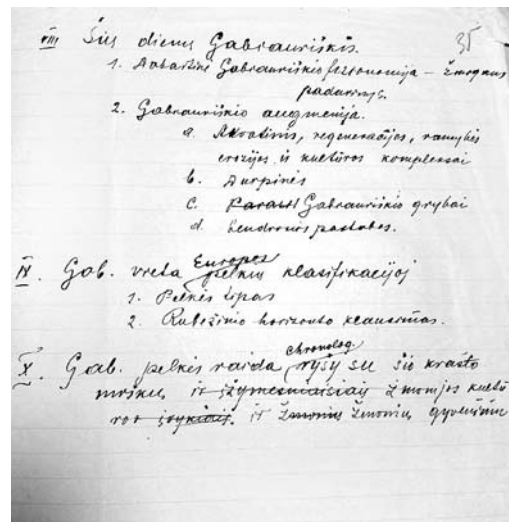 35
VIII Šių dienų Gabrauriškis.
1. Dabartinė Gabrauriškio fizionomija – žmogaus
padarinys.
2. Gabrauriškio augmenija.
a. Atvatinis, regeneracijos, ramybės
erozijos ir kultūros kompleksai
b. Durpinės
c. Gabrauriškio grybai
d. bendrosios pastabos.
IX. Gab. vieta Europos pelkių klasifikacijoj
1. Pelkės tipas
2. Rubežinio horizonto klausimas.
X. Gab. pelkės raida chronolog. ryšy su šio krašto
miškų ir žymesniaisiais žmonijos kultū
ros įvykiais. ir žmonių žmonių gyvenimu